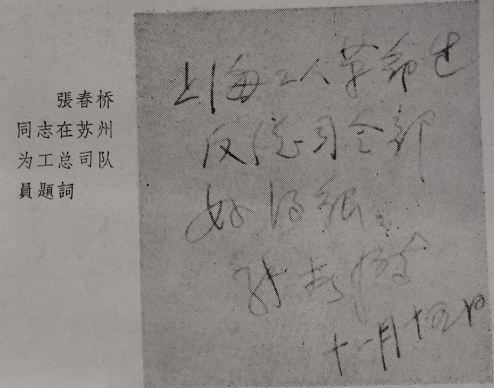 張春桥
同志在苏州
为工总司队
員題詞
上海工人革命造
反总司令部
好得很
张春桥
十一月十五日